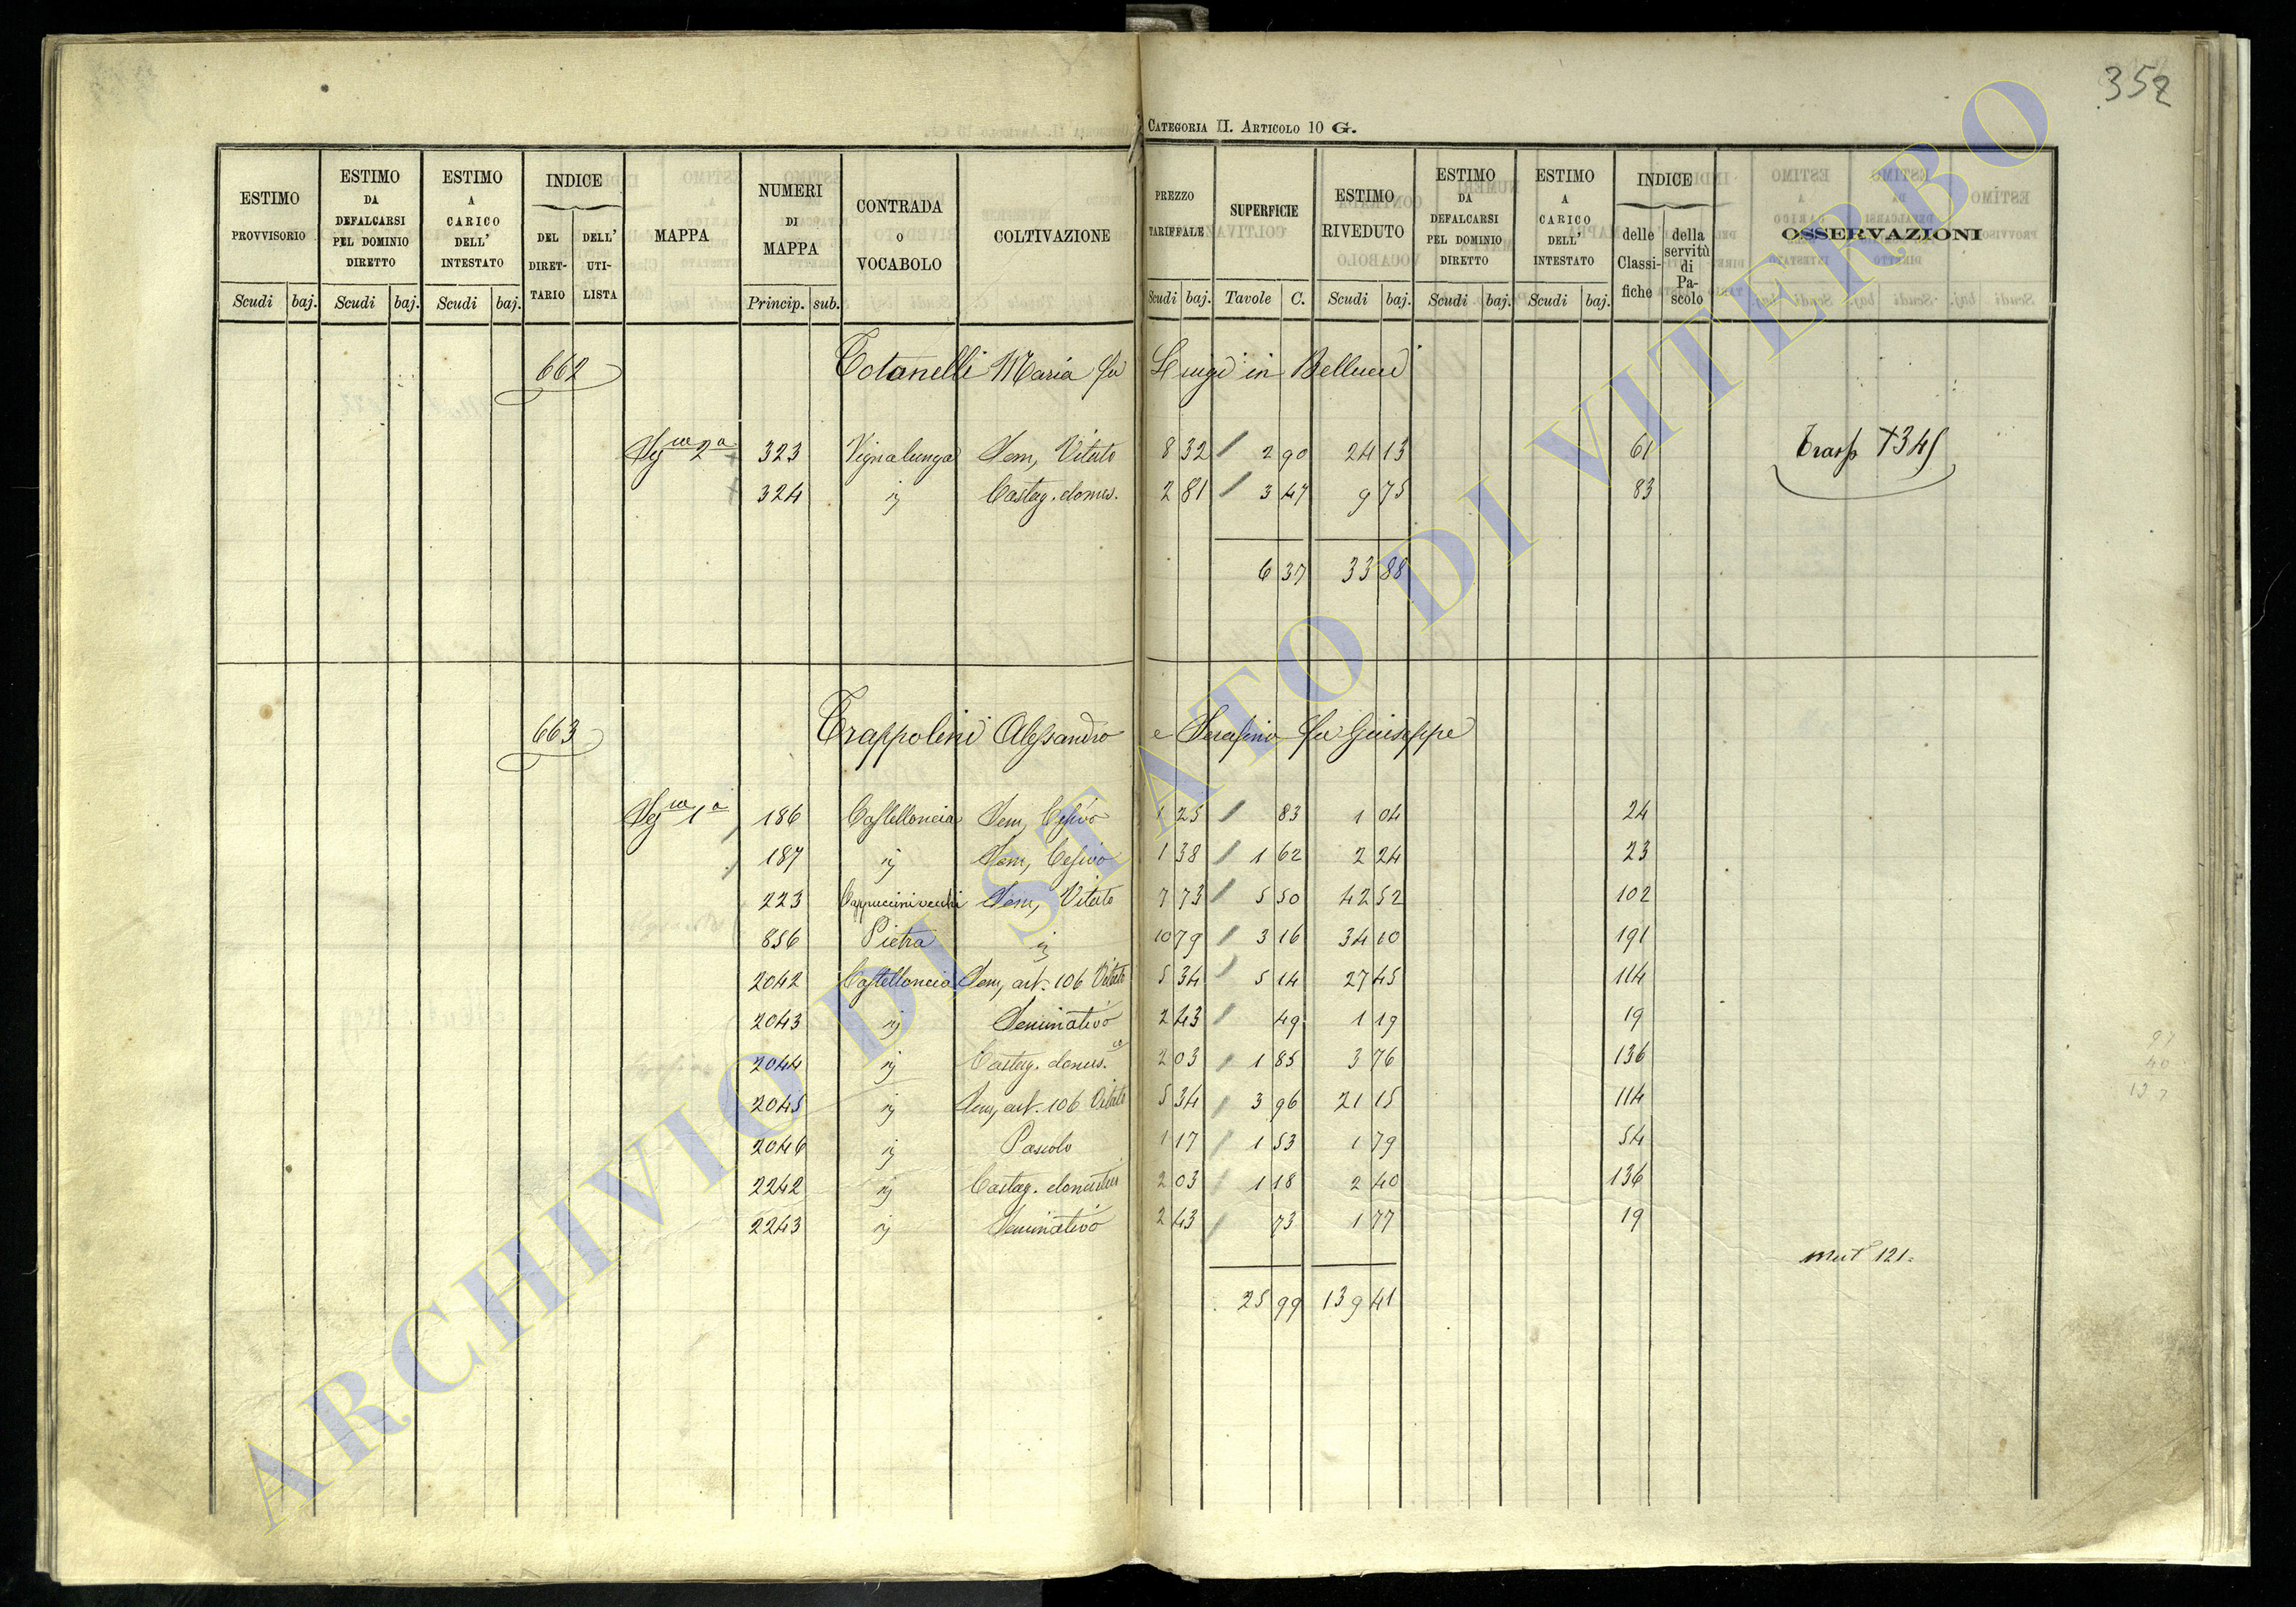 352
CATEGORIA II. ARTICOLO 10 G.
ESTIMO PROVVISORIO Scudi baj.
ESTIMO DA DEFALCARSI PEL DOMINIO DIRETTO Scudi baj.
ESTIMO A CARICO DELL' INTESTATO Scudi baj.
INDICE DEL DIRET-TARIO DELL' UTI-LISTA
MAPPA
NUMERI DI MAPPA Princip. sub.
CONTRADA O VOCABOLO
COLTIVAZIONE
PREZZO TARIFFALE Scudi baj.
SUPERFICIE Tavole C.
ESTIMO RIVEDUTO Scudi baj.
ESTIMO DA DEFALCARSI PEL DOMINIO DIRETTO Scudi baj.
ESTIMO A CARICO DELL' INTESTATO Scudi baj.
INDICE delle Classi-fiche della servitù di Pa-scolo
OSSERVAZIONI
662 Totanelli Maria fu Luigi in Bellucci
Seg 2a 323 Vignalunga Sem, Vitato 8 32 2 90 24 13 61 Trasp 345
324 ij Castag. domes. 2 81 3 47 9 75 83
6 37 33 88
663 Trappolini Alessandro e Serafino fu Giuseppe
Seg 1a 186 Castelloncia Sem, Cesivo 1 25 83 1 04 24
187 ij Sem, Cesivo 1 38 1 62 2 24 23
223 Cappuccini vecchi Sem, Vitato 7 73 5 50 42 52 102
856 Pietra ij 10 79 3 16 34 10 191
2042 Castelloncia Sem, art. 106 Vitato 5 34 5 14 27 45 114
2043 ij Seminativo 2 43 49 1 19 19
2044 ij Castag. domes. 2 03 1 85 3 76 136
2045 ij Sem, art. 106 Vitato 5 34 3 96 21 15 114
2046 ij Pascolo 1 17 1 53 1 79 54
2242 ij Castag. 2 03 1 18 2 40 136
2243 ij Seminativo 2 43 73 1 77 19
Mut 121
25 99 139 41
ARCHIVIO DI STATO DI VITERBO